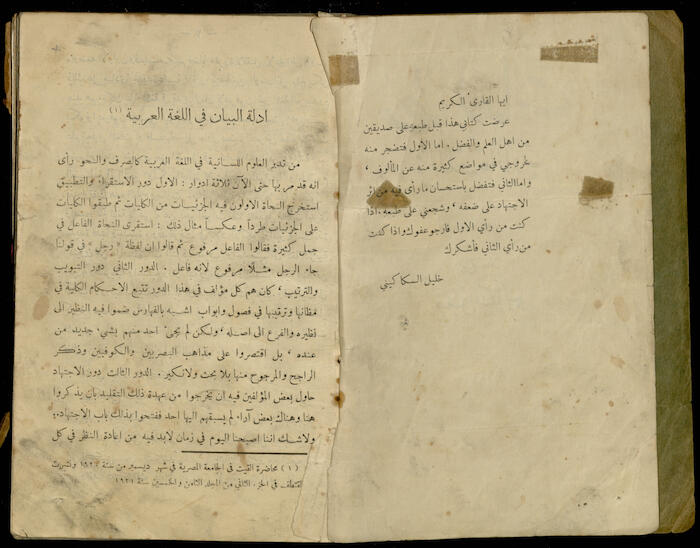 ايها القارىء الكريم
عرضت كتابي هذا قبل طبعه على صديقين
من اهل العلم والفضل. اما الاول فتضجر منه
لخروجي في مواضع كثيرة منه عن المألوف،
واما الثاني فتفضل باستحسان ما رأى فيه من اثر
الاجتهاد على ضعفه، وشجعني على طبعه، فاذا
كنت من رأي الاول فارجو عفوك واذا كنت
من رأي الثاني فأشكرك
خليل السكاكيني
ادلة البيان في اللغة العربية (١)
من تدبر العلوم اللسانية في اللغة العربية كالصرف والنحو رأى
انه قد مر بها حتى الآن ثلاثة ادوار: الاول دور الاستقراء والتطبيق
استخرج النحاة الاولون فيه الجزئيات من الكليات ثم طبقوا الكليات
على الجزئيات طرداً وعكساً مثال ذلك: استقرى النحاة الفاعل في
جمل كثيرة فقالوا الفاعل مرفوع ثم قالوا ان لفظة «رجل» في قولنا
جاء الرجل مثلاً مرفوع لانه فاعل. الدور الثاني دور التبويب
والترتيب، كان هم كل مؤلف في هذا الدور تتبع الاحكام الكلية في
مظانها وترتيبها في فصول وابواب اشبه بالفهارس ضموا فيه النظير الى
نظيره والفرع الى اصله، ولكن لم يجىء احد منهم بشيء جديد من
عنده، بل اقتصروا على مذاهب البصريين والكوفيين وذكر
الراجح والمرجوح منها بلا بحث ولا نكير. الدور الثالث دور الاجتهاد
حاول بعض المؤلفين فيه ان يخرجوا من عهدة ذلك التقليد بان يذكروا
هنا وهناك بعض آراء لم يسبقهم اليها احد ففتحوا بذلك باب الاجتهاد.
ولا شك اننا اصبحنا اليوم في زمان لا بد فيه من اعادة النظر في كل
(١) محاضرة القيت في الجامعة المصرية في شهر ديسمبر من سنة ونشرت
المقتطف في الجزء الثاني من المجلد الثامن والخمسين سنة ١٩٢١